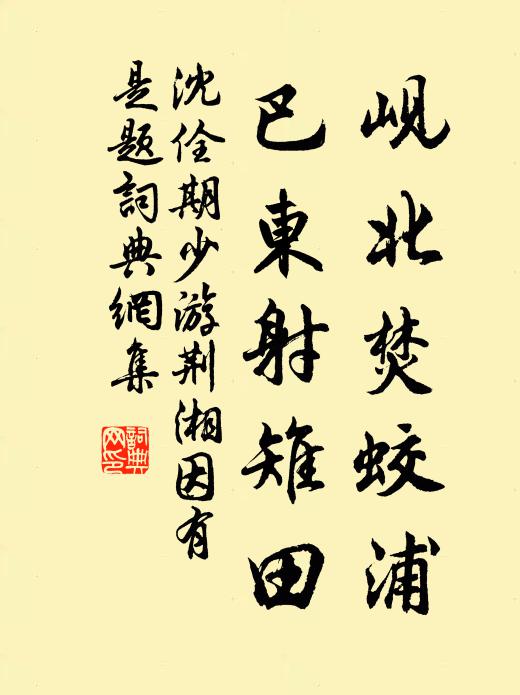 峴北焚蛟浦
巴東射雉田
沈佺期少游荆湘因有
是题詞典網集
詞典
网印